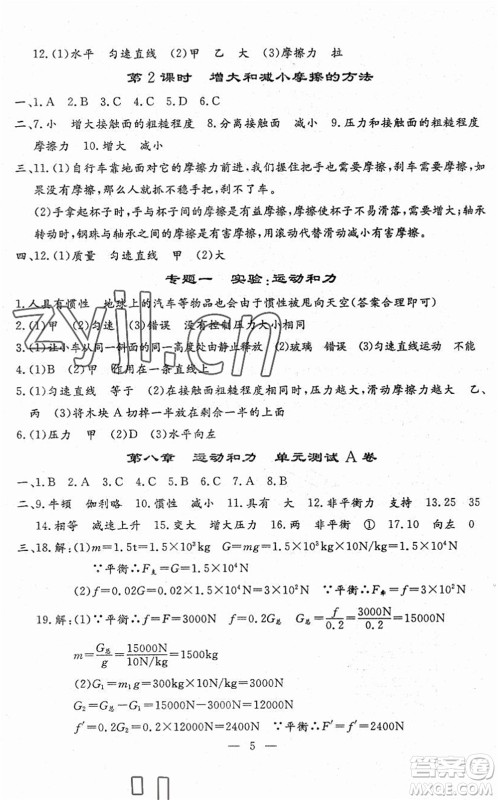 12.(1)水平　匀速直线　(2)甲　乙　大　(3)摩擦力　拉
第2课时　增大和减小摩擦的方法
一、1.A　2.B　3.C　4.C　5.D　6.C
二、7.小　增大接触面的粗糙程度　8.分离接触面　减小　9.压力和接触面粗糙程度
摩擦力　10.增大　减小
三、11.(1)自行车靠地面对它的摩擦力前进,我们握住把手也需要摩擦,刹车需要摩擦,如
果没有摩擦,那么人就抓不稳手把,刹不了车。
(2)手拿起杯子时,手与杯子间的摩擦是有益摩擦,摩擦使杯子不滑落,需增大;轴承
转动时,钢珠与轴承之间的摩擦是有害摩擦,用滚动代替滑动减小有害摩擦。
四、12.(1)质量　匀速直线　(2)甲　(2)大
专题一　实验:运动和力
1.人具有惯性　地球上的汽车等物品也会由于惯性被甩向天空(答案合理即可)
2.(1)甲　(2)匀速　(3)错误　没有控制压力大小相同
3.(1)让小车从同一斜面的同一高度处由静止释放　(2)玻璃　错误　(3)匀速直线运动　不能
4.(1)B　(2)甲　作用在一条直线上
5.(1)匀速直线　等于　(2)在接触面的粗糙程度相同时,压力越大,滑动摩擦力越大　乙、
丙　(3)将木块A切掉一半放在剩余的一半上面
6.(1)压力　甲　(2)D　(3)水平向左
第八章　运动和力　单元测试A卷
一、1.B　2.B　3.D　4.A　5.B　6.C　7.C　8.C
二、9.牛顿　伽利略　10.惯性　减小　11.具有　大　12.非平衡力　支持　13.25　35
14.相等　减速上升　15.变大　增大压力　16.两　非平衡　①　17.10　向左　0
三、18.解:(1)m=1.5t=1.5×10³kg　G=mg=1.5×10³kg×10N/kg=1.5×10⁴N
∵平衡∴F支=G=1.5×10⁴N
(2)f=0.02G=0.02×1.5×10⁴N=3×10²N　∵平衡∴F牵=f=3×10²N
19.解:(1)∵平衡∴f=F=3000N　f=0.2G总　G总=f/0.2=3000N/0.2=15000N
m=G总/g=15000N/10N/kg=1500kg
(2)G₁=m₁g=300kg×10N/kg=3000N
G₂=G总-G₁=15000N-3000N=12000N
f′=0.2G₂=0.2×12000N=2400N　∵平衡∴F′=f′=2400N
— 5 —
zyjl.cn
答案圈
MXQE.COM